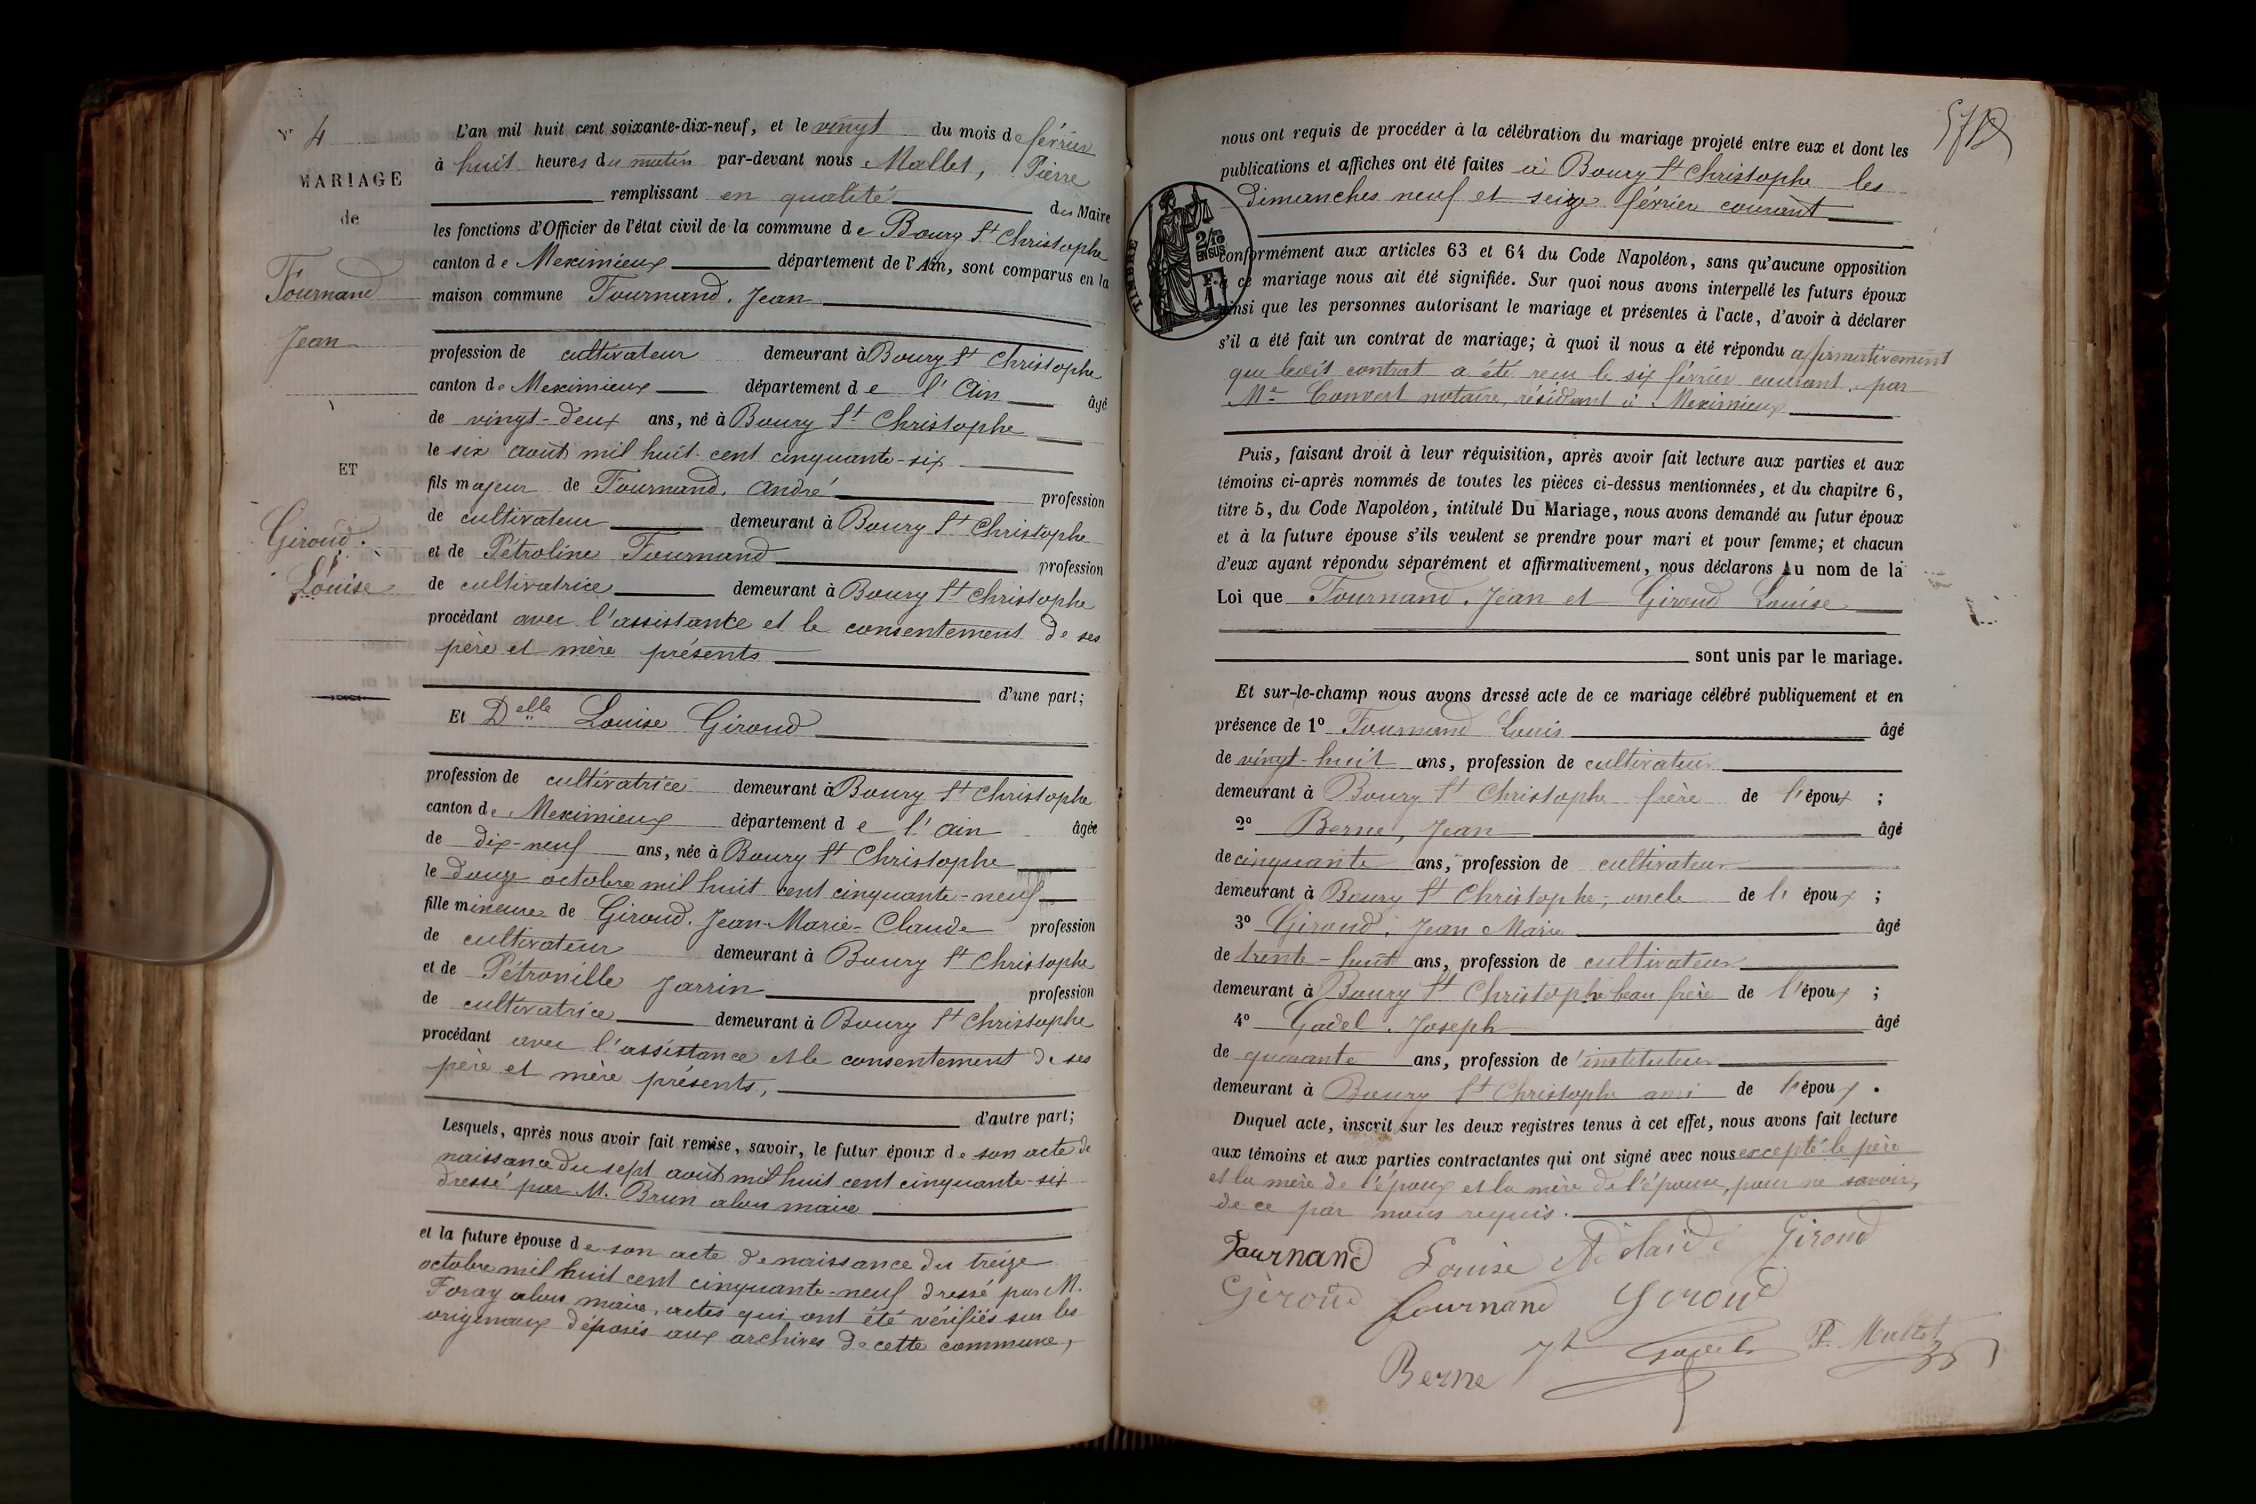 N° 4
MARIAGE
de
Fournand
Jean
ET
Giroud.
Louise
L'an mil huit cent soixante-dix-neuf, et le vingt du mois de février
à huit heures du matin par-devant nous Mallet, Pierre
remplissant en qualité du Maire
les fonctions d'Officier de l'état civil de la commune de Bourg St Christophe
canton de Meximieux département de l'Ain, sont comparus en la
maison commune Fournand. Jean
profession de cultivateur demeurant à Bourg St Christophe
canton de Meximieux département de l'Ain âgé
de vingt-deux ans, né à Bourg St Christophe
le six août mil huit cent cinquante-six
fils majeur de Fournand. André profession
de cultivateur demeurant à Bourg St Christophe
et de Pétroline Fournand profession
de cultivatrice demeurant à Bourg St Christophe
procédant avec l'assistance et le consentement de ses
père et mère présents
d'une part;
Et Delle Louise Giroud
profession de cultivatrice demeurant à Bourg St Christophe
canton de Meximieux département de l'Ain âgée
de dix-neuf ans, née à Bourg St Christophe
le douze octobre mil huit cent cinquante-neuf
fille mineure de Giroud. Jean-Marie-Claude profession
de cultivateur demeurant à Bourg St Christophe
et de Pétronille Jarrin profession
de cultivatrice demeurant à Bourg St Christophe
procédant avec l'assistance et le consentement de ses
père et mère présents,
d'autre part;
Lesquels, après nous avoir fait remise, savoir, le futur époux de son acte de
naissance du sept août mil huit cent cinquante-six
dressé par M. Brun alors maire
et la future épouse de son acte de naissance du treize
octobre mil huit cent cinquante-neuf dressé par M.
Foray alors maire, actes qui ont été vérifiés sur les
originaux déposés aux archives de cette commune,
nous ont requis de procéder à la célébration du mariage projeté entre eux et dont les
publications et affiches ont été faites à Bourg St Christophe les
dimanches neuf et seize février courant
TIMBRE
2/10
EN SUS
F.
1
conformément aux articles 63 et 64 du Code Napoléon, sans qu'aucune opposition
à ce mariage nous ait été signifiée. Sur quoi nous avons interpellé les futurs époux
ainsi que les personnes autorisant le mariage et présentes à l'acte, d'avoir à déclarer
s'il a été fait un contrat de mariage; à quoi il nous a été répondu affirmativement
que ledit contrat a été reçu le six février courant. par
Me Convert notaire, résidant à Meximieux
Puis, faisant droit à leur réquisition, après avoir fait lecture aux parties et aux
témoins ci-après nommés de toutes les pièces ci-dessus mentionnées, et du chapitre 6,
titre 5, du Code Napoléon, intitulé Du Mariage, nous avons demandé au futur époux
et à la future épouse s'ils veulent se prendre pour mari et pour femme; et chacun
d'eux ayant répondu séparément et affirmativement, nous déclarons Au nom de la
Loi que Fournand. Jean et Giroud Louise
sont unis par le mariage.
Et sur-le-champ nous avons dressé acte de ce mariage célébré publiquement et en
présence de 1° Fournand Louis âgé
de vingt-huit ans, profession de cultivateur
demeurant à Bourg St Christophe frère de l'époux ;
2° Berne, Jean âgé
de cinquante ans, profession de cultivateur
demeurant à Bourg St Christophe, oncle de l'époux ;
3° Giroud. Jean Marie âgé
de trente-huit ans, profession de cultivateur
demeurant à Bourg St Christophe beau frère de l'époux ;
4° Gadel. Joseph âgé
de quarante ans, profession de instituteur
demeurant à Bourg St Christophe ami de l'époux .
Duquel acte, inscrit sur les deux registres tenus à cet effet, nous avons fait lecture
aux témoins et aux parties contractantes qui ont signé avec nous excepté le père
et la mère de l'époux et la mère de l'épouse, pour ne savoir,
de ce par nous requis.
Fournand Louise Adelaide Giroud
Giroud fournand Giroud
Berne Jh Gadel P. Mallet